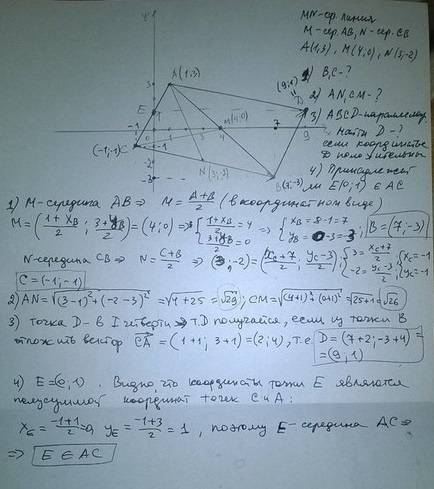 MN-ср. линия
M-сер. AB, N-сер. CB
A(1;3), M(4;0), N(3;-2)
1) B,C-?
2) AN, CM-?
3) ABCD-параллелогр.
Найти D-?
если координаты
D положительны
4) Принадлежит
ли E(0;1) ∈ AC
y
A(1;3)
(9;1)
D
3
E
M(4;0)
-1 0 4 7 9
(-1;-1) C
-1
N(3;-2)
-3
B(7;-3)
1) M-середина AB ⇒ M = A+B/2 (в координатном виде)
M = (1+x_B/2 ; 3+y_B/2) = (4;0) ⇒ { 1+x_B/2 = 4 ; 3+y_B/2 = 0 ⇒ { x_B = 8-1=7 ; y_B = 0-3=-3 ; B=(7;-3)
N-середина CB ⇒ N = C+B/2 ⇒ (3;-2) = (x_C+7/2 ; y_C-3/2) ; { 3 = x_C+7/2 ; -2 = y_C-3/2 ; { x_C=-1 ; y_C=-1
C=(-1;-1)
2) AN = √(3-1)²+(-2-3)² = √4+25 = √29 ; CM = √(4+1)²+(0+1)² = √25+1 = √26
3) точка D- в I четверти ⇒ т.D получается, если из точки B
отложить вектор CA = (1+1; 3+1) = (2;4), т.е. D = (7+2; -3+4) =
= (9;1)
4) E=(0;1). Видно, что координаты точки E являются
полусуммой координат точек C и A:
x_E = -1+1/2 = 0, y_E = -1+3/2 = 1, поэтому E-середина AC ⇒
⇒ E ∈ AC